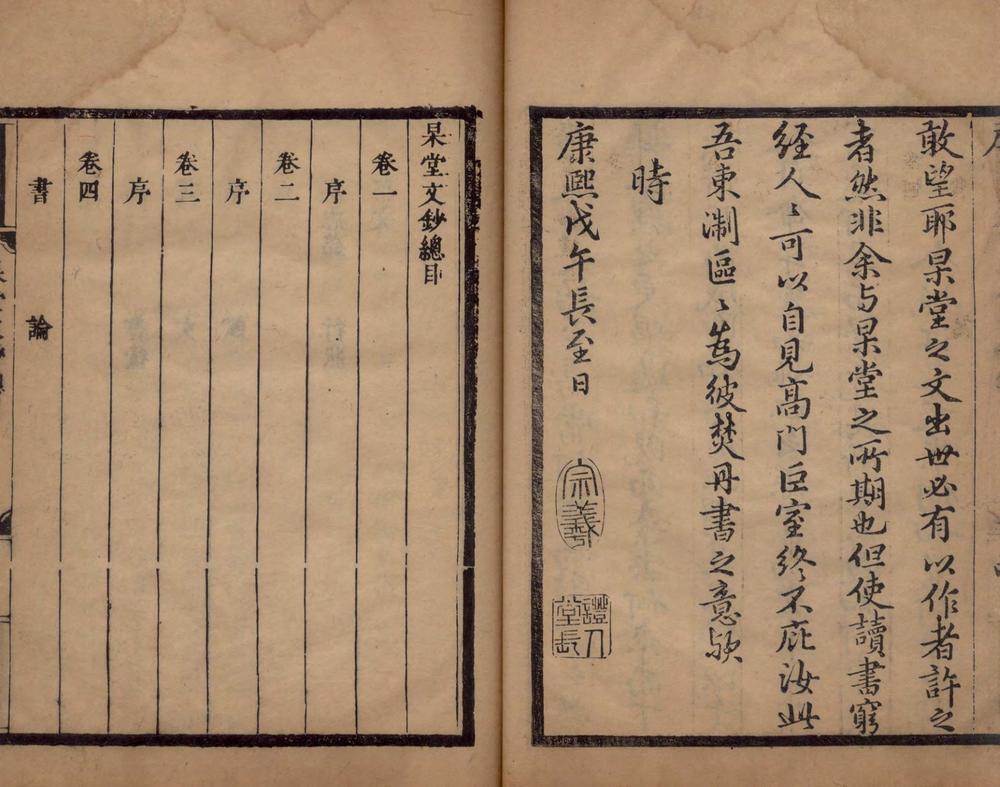 敢望耶杲堂之文出世必有以作者許之
者然非余与杲堂之所期也但使讀書窮
経人〻可以自見高門巨室終不庇汝此
吾東淛區〻為彼焚丹書之意欤
時
康熙戊午長至日
宗羲
證人堂長
杲堂文鈔總目
卷一
序
卷二
序
卷三
序
卷四
書　論